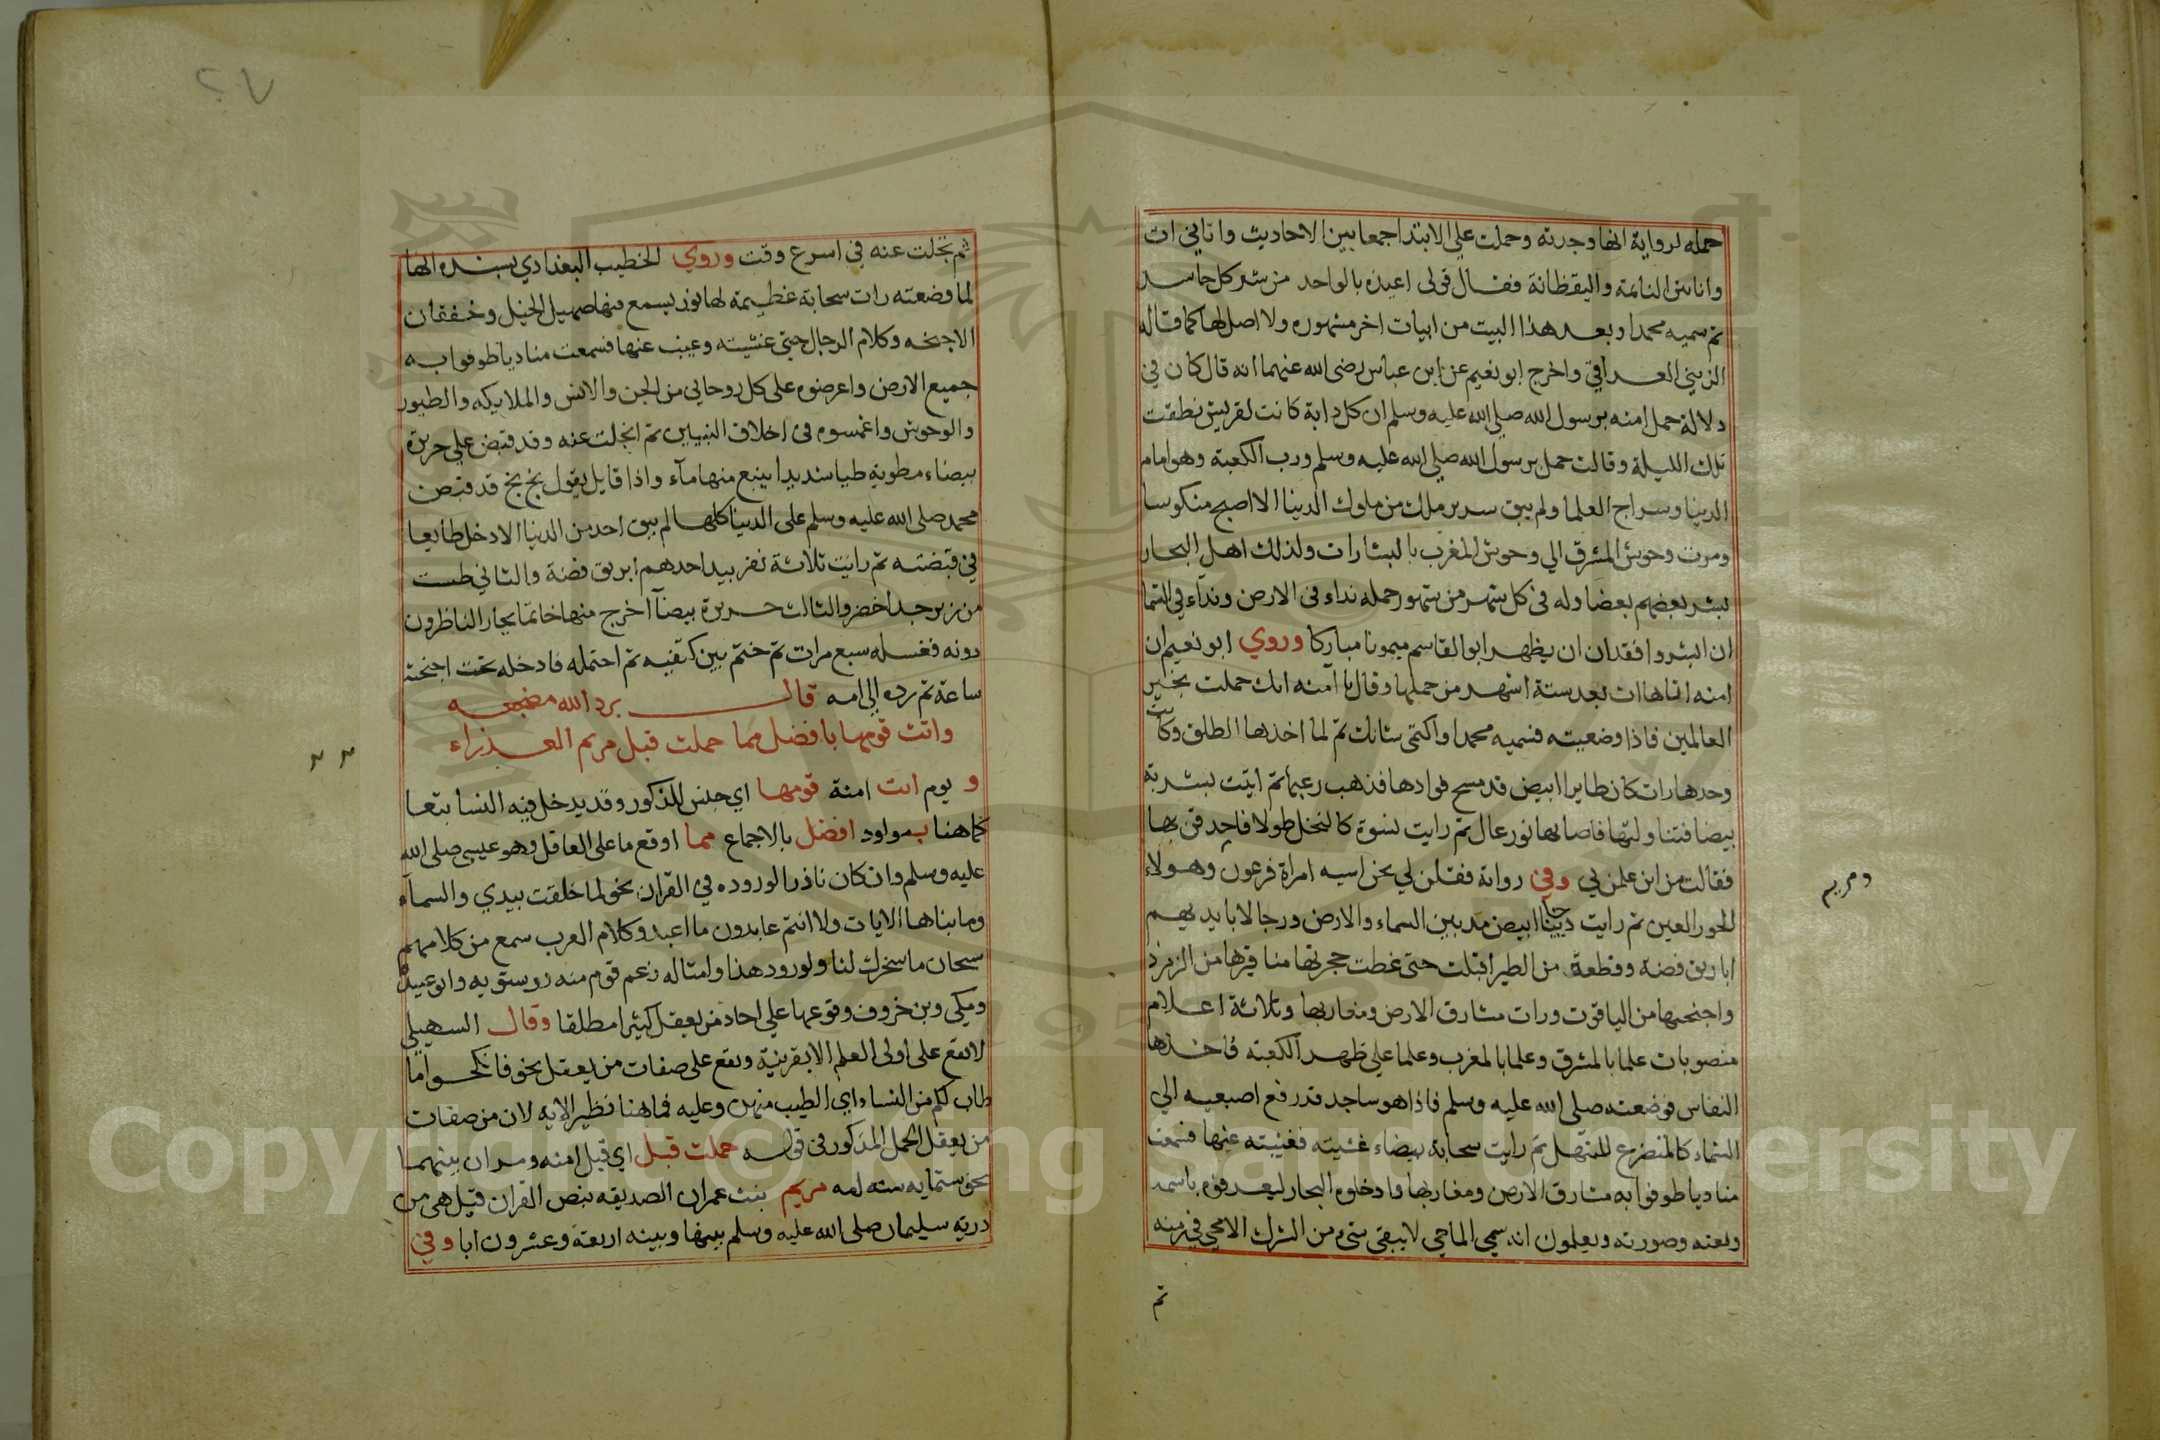 حمله لرواية انها وجدته وحملت علي الابتدا جمعا بين الاحاديث واتاني ات
وانا بين النائمة واليقظانة فقال قولى اعيذه بالواحد من شر كل حاسد
ثم سميه محمدا وبعد هذا البيت من ابيات اخر مشهوره ولا اصل لها كما قاله
الزيني العراقي واخرج ابو نعيم عن ابن عباس رضى الله عنهما انه قال كان في
دلالة حمل امنه برسول الله صلي الله عليه وسلم ان كل دابة كانت لقريش نطقت
تلك الليلة وقالت حمل برسول الله صلي الله عليه وسلم ورب الكعبة وهو امام
الدنيا وسراج العلما ولم يبق سرير ملك من ملوك الدنيا الا اصبح منكوسا
ومرت وحوش المشرق الي وحوش المغرب بالبشارات ولذلك اهل البحار
يبشر بعضهم بعضا وله في كل شهر من شهور حمله نداء في الارض ونداء في السما
ان ابشروا فقد ان ان يظهر ابو القاسم ميمونا مباركا وروي ابو نعيم ان
امنه اتاها ات بعد ستة اشهر من حملها وقال يا آمنه انك حملت بخير
العالمين فاذا وضعيته فسميه محمدا واكتمى شانك ثم لما اخذها الطلق وكانت
وحدها رات كان طايرا ابيض قد مسح فوادها فذهب رعبها ثم اتيت بشربة
بيضا فتناولتها فاصابها نور عال ثم رايت نسوة كالنخل طولا فاحدقن بها
فقالت من اين علمن بي وفي رواية فقلن لي نحن اسيه امراة فرعون وهولاء
ومريم
الحور العين ثم رايت ديباجا ابيض مد بين السماء والارض ورجالا بايديهم
اباريق فضة وقطعة من الطير اقبلت حتى غطت حجرتها مناقيرها من الزمرذ
واجنحتها من الياقوت ورات مشارق الارض ومغاربها وثلاثة اعلام
منصوبات علما بالمشرق وعلما بالمغرب وعلما علي ظهر الكعبة فاخذها
النفاس فوضعته صلى الله عليه وسلم فاذا هو ساجد قد رفع اصبعيه الي
السماء كالمتضرع المبتهل ثم رايت سحابة بيضاء غشيته فغيبته عنها فسمعت
مناديا طوفوا به مشارق الارض ومغاربها وادخلوه البحار ليعرفوه باسمه
ونعته وصورته ويعلمون انه سمي الماحي لا يبقى شيء من الشرك الا محي في زمنه
ثم
٢٧
ثم تجلت عنه في اسرع وقت وروي الخطيب البغدادي بسنده انها
لما وضعته رات سحابة عظيمة لها نور يسمع فيها صهيل الخيل وخفقان
الاجنحه وكلام الرجال حتى غشيته وغيب عنها فسمعت مناديا طوفوا به
جميع الارض واعرضوه على كل روحاني من الجن والانس والملايكه والطيور
والوحوش واغمسوه في اخلاق النبيين ثم انجلت عنه وقد قبض علي حريرة
بيضاء مطوية طيا شديدا ينبع منها ماء واذا قايل يقول بخ بخ قد قبض
محمد صلى الله عليه وسلم على الدنيا كلها لم يبق احد من الدنيا الا دخل طايعا
في قبضته ثم رايت ثلاثة نفر بيد احدهم ابريق فضة والثاني طست
من زبرجد اخضر والثالث حريرة بيضا اخرج منها خاتما يحار الناظرون
دونه فغسله سبع مرات ثم ختم بين كتفيه ثم احتمله فادخله تحت اجنحته
ساعة ثم رده الي امه قال برد الله مضجعه
واتت قومها بافضل مما حملت قبل مريم العذراء
و يوم اتت امنة قومها اي جنس المذكور وقد يدخل فيه النسا تبعا
كما هنا بمولود افضل بالاجماع مما اوقع ما على العاقل وهو عيسى صلى الله
عليه وسلم وان كان نادرا لوروده في القران نحو لما خلقت بيدي والسماء
وما بناها الايات ولا انتم عابدون ما اعبد وكلام العرب سمع من كلامهم
سبحان ما سخرك لنا ولورود هذا وامثاله زعم قوم منه درستويه وابو عبيدة
ومكى وبن خروف وقوعها علي احاد من يعقل كثيرا مطلقا وقال السهيلي
لا يقع على اولى العلم الا بقرينة ويقع على صفات من يعقل نحو فانكحوا ما
طاب لكم من النساء اي الطيب منهن وعليه فما هنا نظير الايه لان من صفات
من يعقل الحمل المذكور في قوله حملت قبل اي قبل امنه ومر ان بينهما
نحو ستمايه سنه امه مريم بنت عمران الصديقه بنص القران قيل هي من
ذرية سليمان صلى الله عليه وسلم بينها وبينه اربعة وعشرون ابا وفي
Copyright © King Saud University